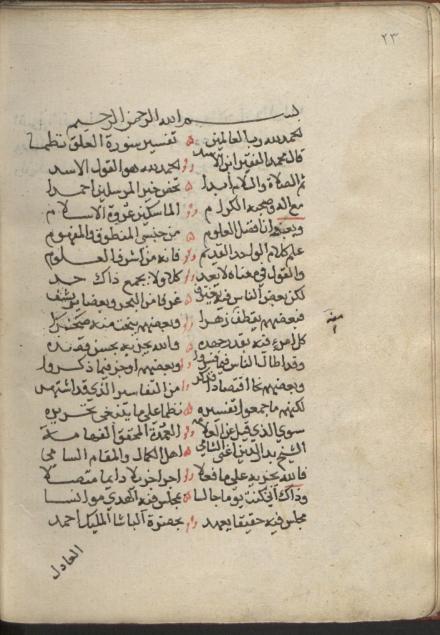 ٢٣
بسم الله الرحمن الرحيم
الحمد لله رب العالمين تفسير سورة العلق نظما
قال محمد الفقير ابن الاسد الحمد لله هو القول الاسد
ثم الصلاة والسلام ابدا تخص خير المرسلين احمدا
مع اله وصحبه الكرام الماسكين عروة الاسلام
وبعد انا افضل العلوم من جنسي المنطوق والمفهوم
علم كلام الواحد القديم فانه من اشرف العلوم
والقول في معناه لا يعد كلا ولا يجمع ذاك حد
لكن بعض الناس فيه يغترف غرفا من البحر وبعضا يرتشف
فبعضهم يقطف زهرا وبعضهم
كل امرء فيه بقدر جهده والله يجزيه بحسن قصده
وقد اطال الناس فيما فسروا وبعضهم اوجز فيما ذكروا
وبعضهم نحا اقتصادا من التفاسير الذي قد اشتهر
لكنهم ما جمعوا تفسيره نظما على ما ينبغي تحريره
سوى الذي قيل عن العلامه العمدة المحقق الفهامه
الشيخ بدر الدين اعني الشامي اهل الكمال والمقام السامي
فالله يجزيه على ما فعلا اجرا جزيلا دايما متصلا
وذاك اني كنت يوما جالسا بمجلس فيه الهدى موانسا
مجلس فيه حقيقا يحمد بحضرة الباشا المليك احمد
العادل